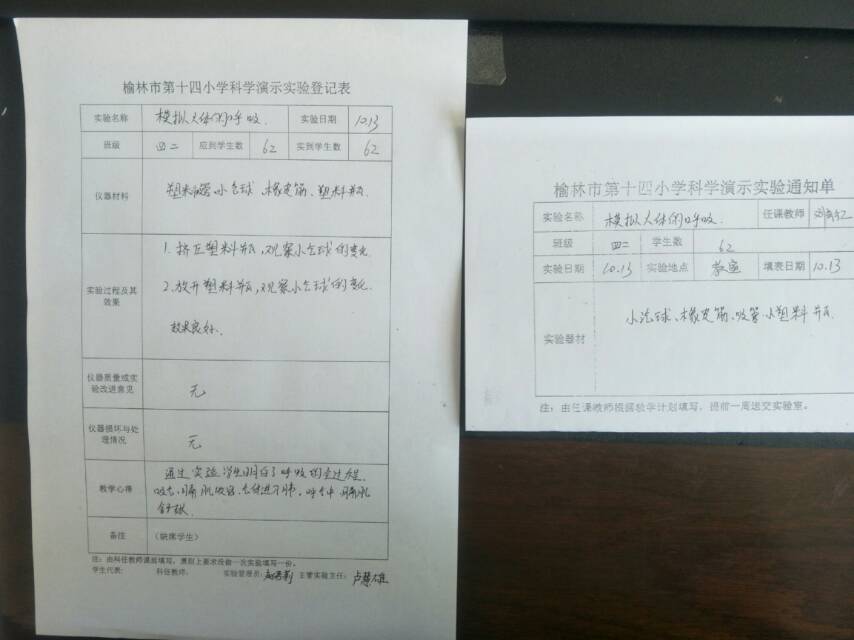 榆林市第十四小学科学演示实验登记表
实验名称 模拟人体的呼吸. 实验日期 10.13
班级 四二 应到学生数 62 实到学生数 62
仪器材料 塑料吸管、小气球、橡皮筋、塑料瓶.
实验过程及其效果
1. 挤压塑料瓶,观察小气球的变化.
2. 放开塑料瓶,观察小气球的变化.
效果良好.
仪器质量或实验改进意见 无
仪器损坏与处理情况 无
教学心得
通过实验学生明白了呼吸的全过程.
吸气,膈肌收缩,气体进入肺。呼气中 膈肌
舒张
备注 (缺席学生)
注:由科任教师课前填写,原则上要求没做一次实验填写一份。
学生代表: 科任教师: 实验管理员: 主管实验主任:卢慧雄
榆林市第十四小学科学演示实验通知单
实验名称 模拟人体的呼吸. 任课教师
班级 四二 学生数 62
实验日期 10.13 实验地点 教室 填表日期 10.13
实验器材 小汽球、橡皮筋、吸管、小塑料瓶.
注:由任课教师根据教学计划填写,提前一周送交实验室。